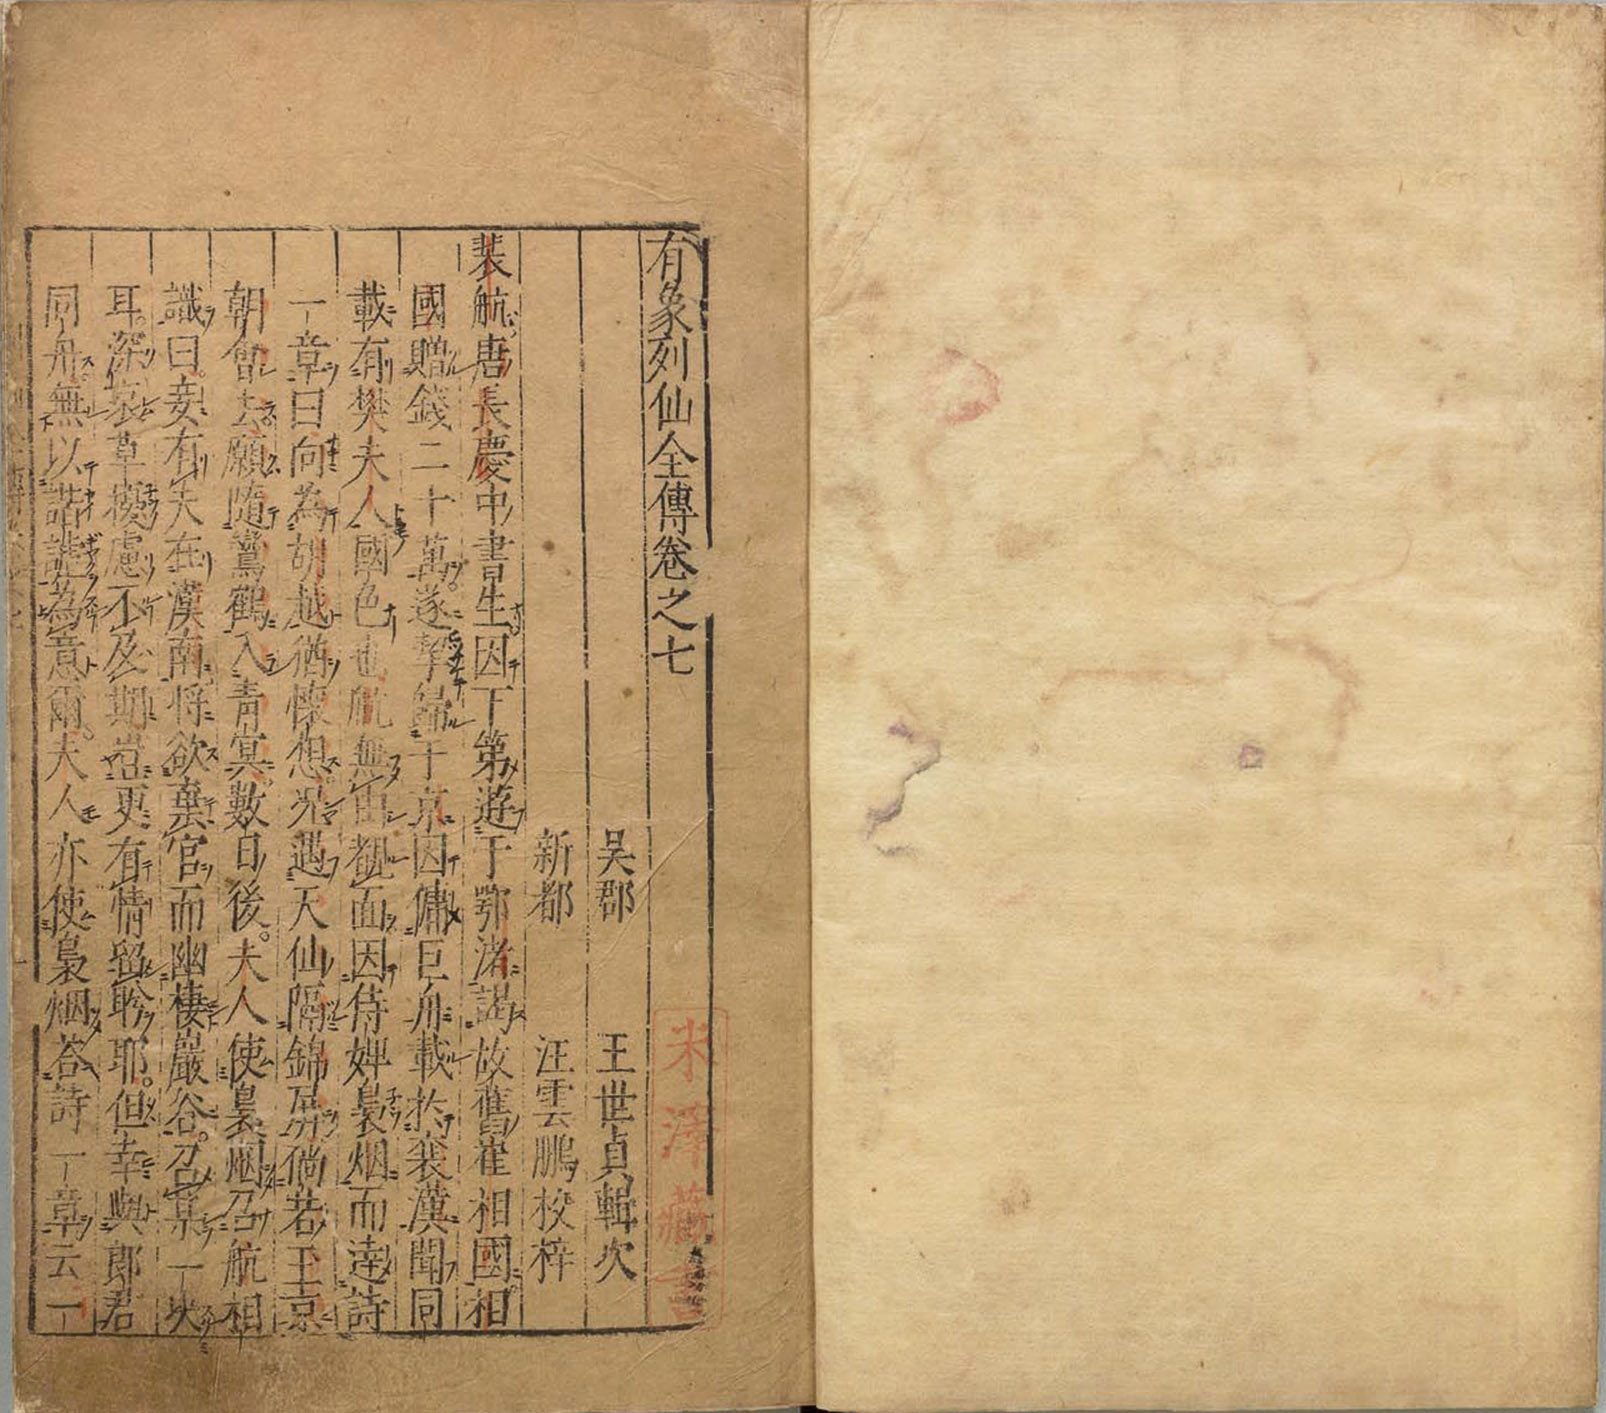 有象列仙全傳卷之七
吳郡 王世貞輯次
新都 汪雲鵬校梓
裴航唐長慶中書生因下第遊于鄂渚謁故舊崔相國相
國贈錢二十萬遂挈歸于京因傭巨舟載於襄漢聞同
載有樊夫人國色也航無由覩面因侍婢裊烟而達詩
一章曰向為胡越猶懷想况遇天仙隔錦屏倘若玉京
朝會去願隨鸞鶴入青冥數日後夫人使裊烟召航相
識曰妾有夫在漢南將欲棄官而幽棲巖谷召某一决
耳深哀草擾慮不及期豈更有情留盼耶但幸與郎君
同舟無以諧謔為意爾夫人亦使裊烟荅詩一章云一
米澤藏書